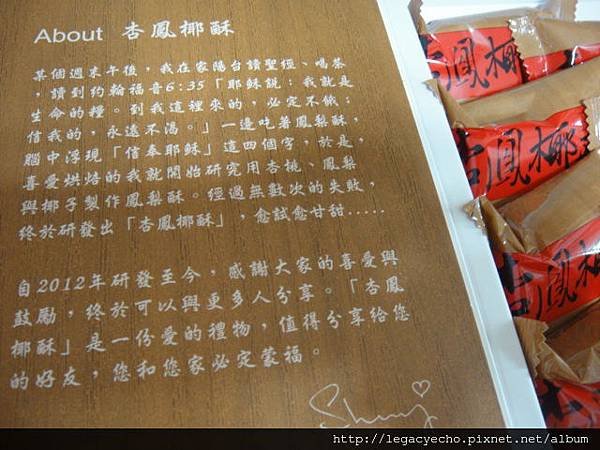 About 杏鳳椰酥
某個週末午後，我在家陽台讀聖經、喝茶
，讀到約翰福音6:35「耶穌說：我就是
生命的糧。到我這裡來的，必定不餓；
信我的，永遠不渴。」一邊吃著鳳梨酥，
腦中浮現「信奉耶穌」這四個字，於是，
喜愛烘焙的我就開始研究用杏桃、鳳梨
與椰子製作鳳梨酥。經過無數次的失敗，
終於研發出「杏鳳椰酥」，愈試愈甘甜.....
自2012年研發至今，感謝大家的喜愛與
鼓勵，終於可以與更多人分享。「杏鳳
椰酥」是一份愛的禮物，值得分享給您
的好友，您和您家必定蒙福。
杏鳳椰
杏鳳椰
http://legacyecho.pixnet.net/album